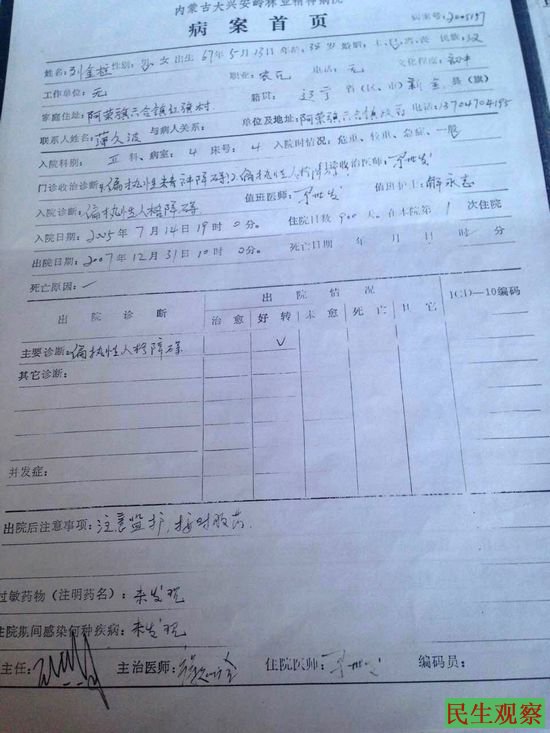 内蒙古大兴安岭林业精神病院
病案首页
病案号:2005197
姓名:刘金柱 性别: 男 女 出生 67年5月13日 年龄: 38岁 婚姻: 民族:汉
工作单位:无 职业:农民 电话:无 文化程度:初中
家庭住址:阿荣旗六合镇红旗村 籍贯:辽宁省(区、市)新金县(旗)
联系人姓名: 与病人关系: 单位及地址:阿荣旗六合镇政府 电话:13704704195
入院科别: 科、病室: 4 床号: 4 入院时情况:危重、较重、急症、一般
门诊收治诊断:偏执性精神障碍 偏执性人格障碍 收治医师:
入院诊断:偏执性人格障碍 值班医师: 值班护士:解永志
入院日期:2005年7月14日19时0分。 住院日数900天。在本院第1次住院
出院日期:2007年12月31日10时0分。 死亡日期 年 月 日 时 分
死亡原因:
出院诊断 出院情况 ICD—10编码
治愈 好转 未愈 死亡 其它
主要诊断:偏执性人格障碍 √
其它诊断:
并发症:
出院后注意事项:注意监护,按时服药.
过敏药物(注明药名):未发现
住院期间感染何种疾病:未发现
主任: 主治医师: 住院医师: 编码员:
民生观察